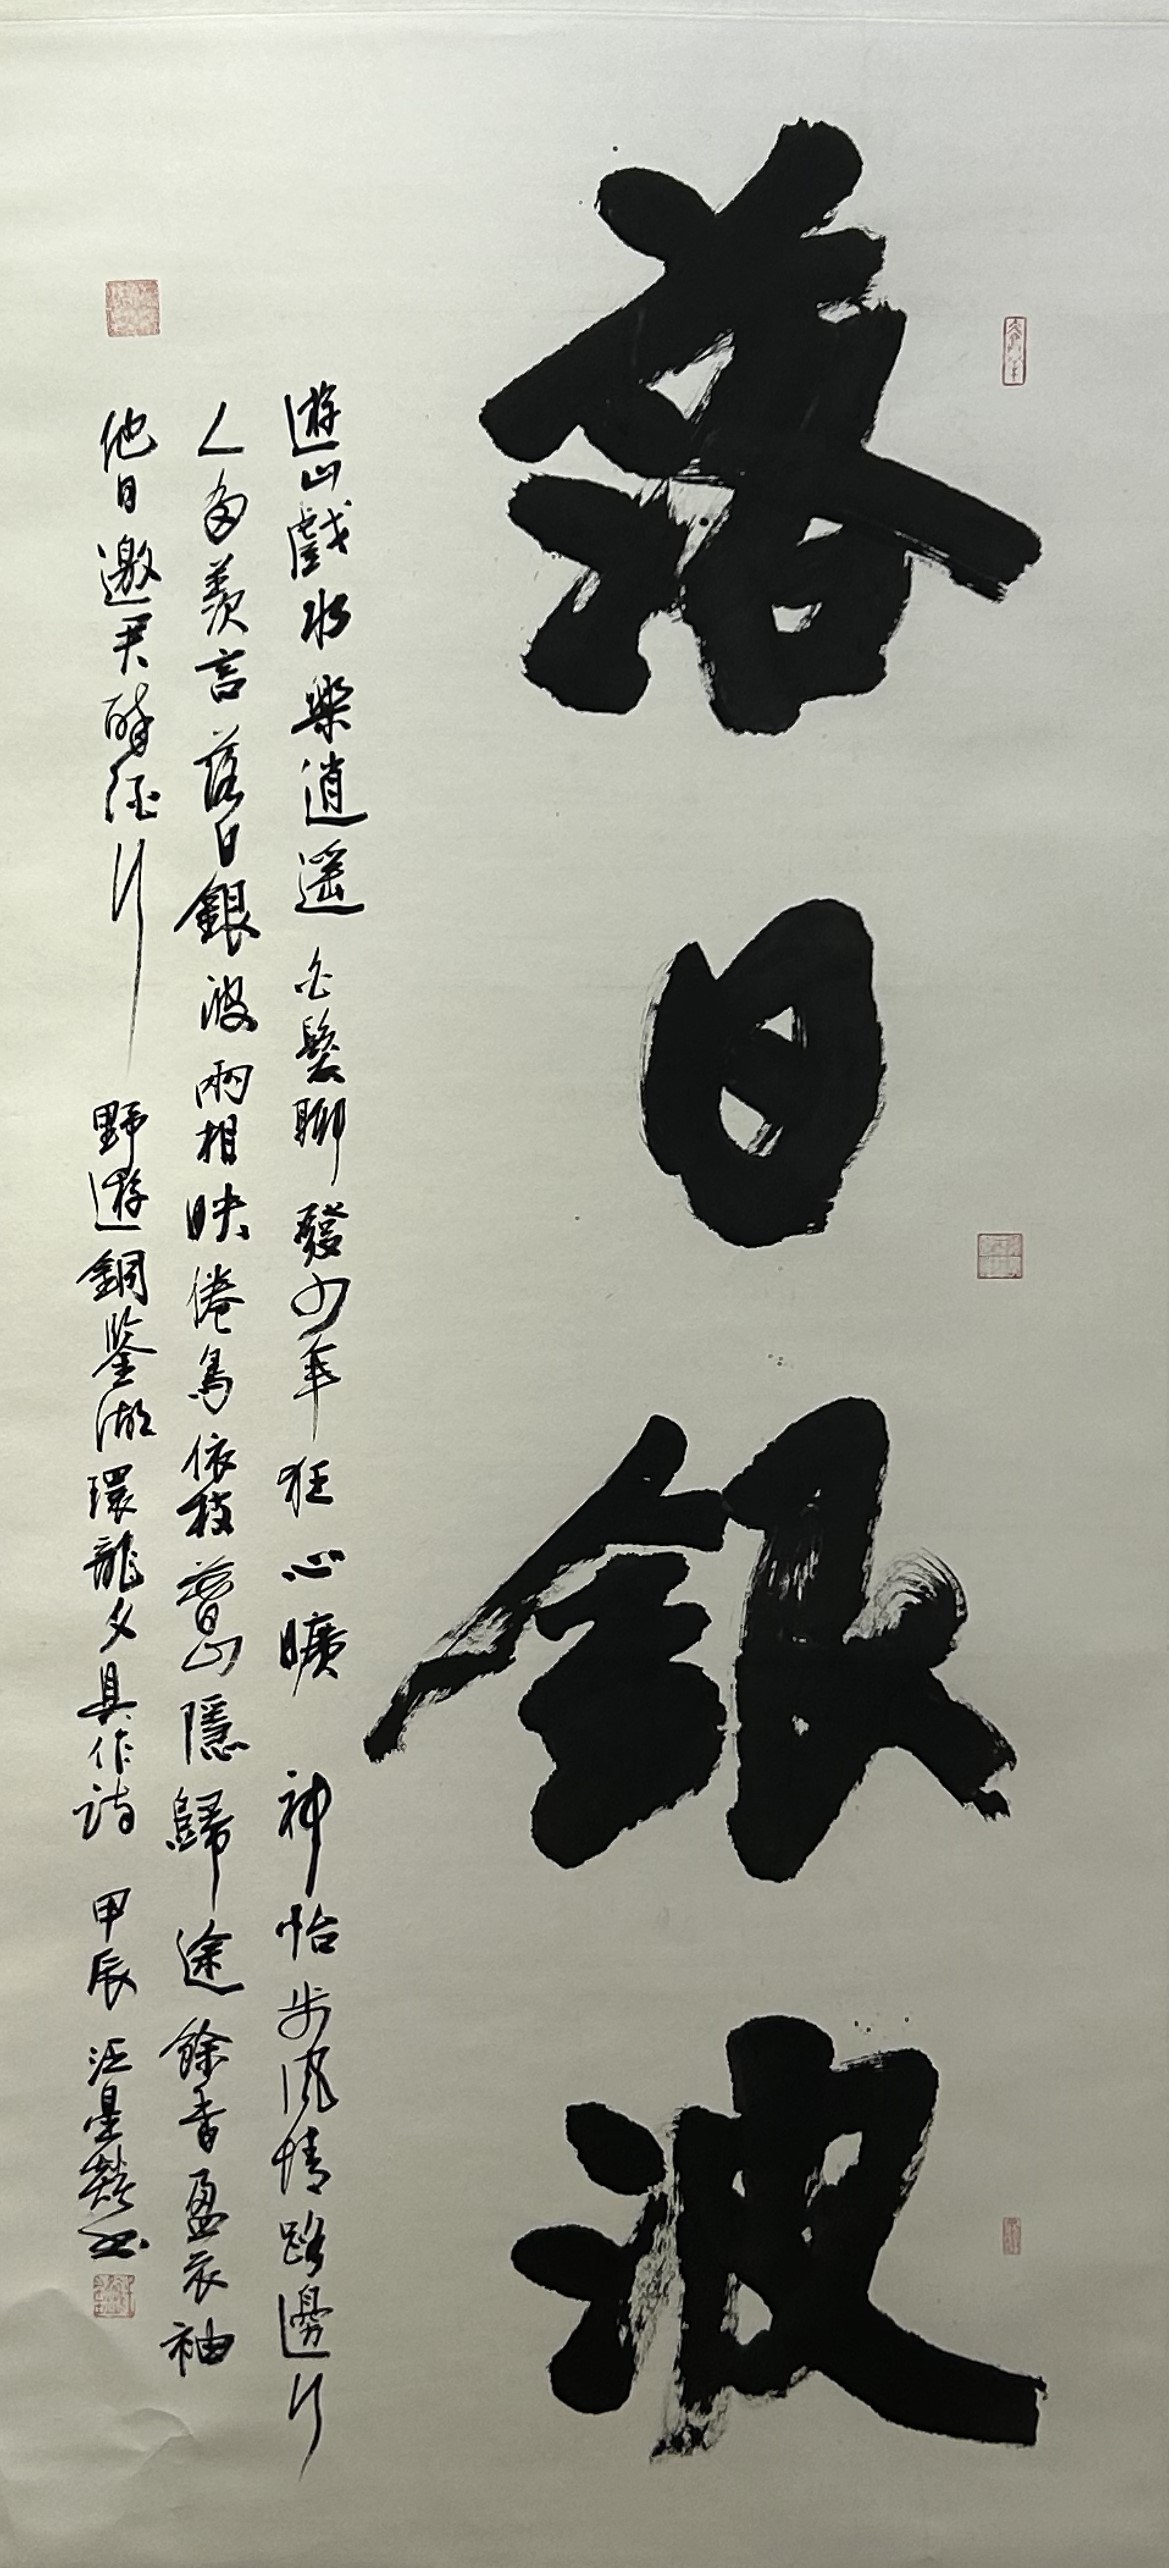 落日銀波
遊山戲水樂逍遥白髮聊發少年狂心曠神怡步風情路邊行
人多羨言落日銀波兩相映倦鳥依枝暮山隱歸途餘香盈衣袖
他日邀君醉徑行 野遊銅鑒湖環龍夕具作詩 甲辰 汪星燚書